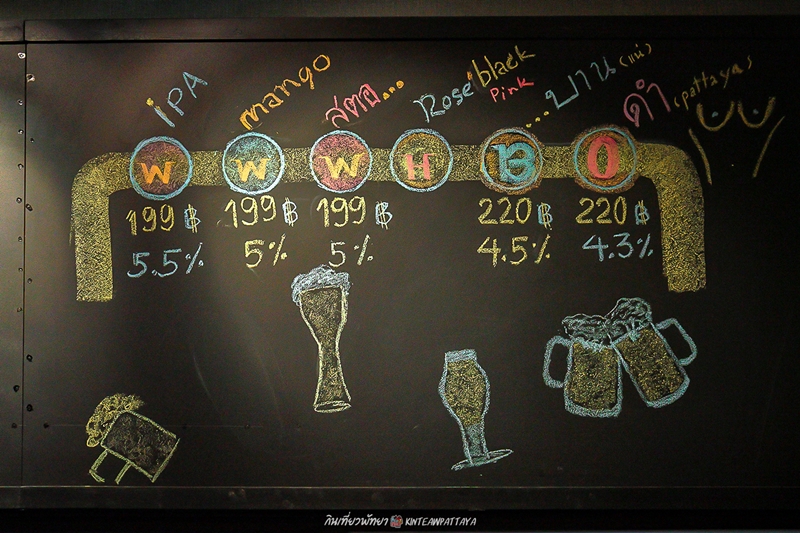 IPA
mango
สตอ...
Rose/black
Pink
...บาน (แน่)
ดำ (pattaya)
W W W H B O
199 ฿ 199 ฿ 199 ฿ 220 ฿ 220 ฿
5.5% 5% 5% 4.5% 4.3%
กินเที่ยวพัทยา KINTEAWPATTAYA